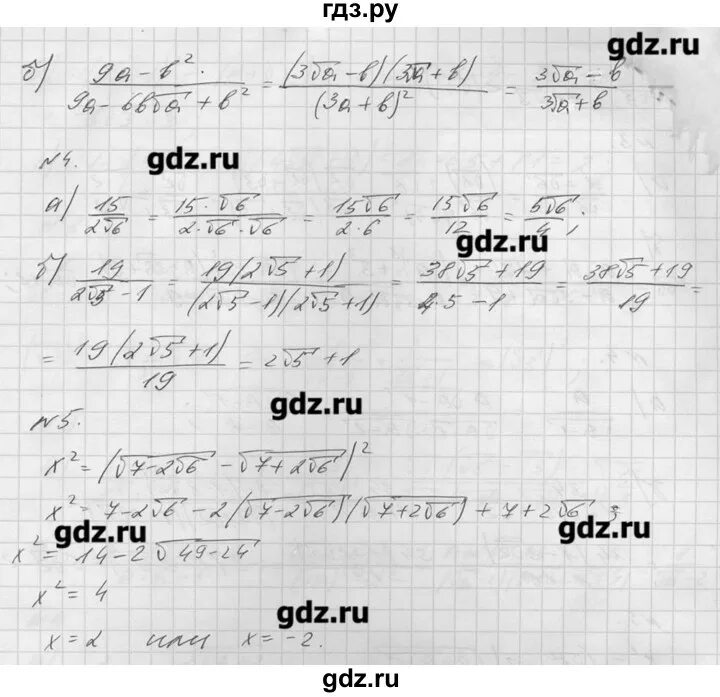 гдз.ру
gdz.ru
б) (9a-b²)/(9a-6b√a+b²) = ((3√a-b)(3√a+b))/(3a+b)² = (3√a-b)/(3√a+b)
gdz.ru
№4.
а) 15/(2√6) = (15·√6)/(2·√6·√6) = 15√6/(2·6) = 15√6/12 = 5√6/4;
gdz.ru
б) 19/(2√5-1) = 19(2√5+1)/((2√5-1)(2√5+1)) = (38√5+19)/(4·5-1) = (38√5+19)/19 =
= 19(2√5+1)/19 = 2√5+1
gdz.ru
№5.
x² = (√(7-2√6) - √(7+2√6))²
x² = 7-2√6 - 2(√(7-2√6))(√(7+2√6)) + 7+2√6
gdz.ru
gdz.ru
x² = 14-2√(49-24)
x² = 4
gdz.ru
x = 2 или x = -2.
gdz.ru